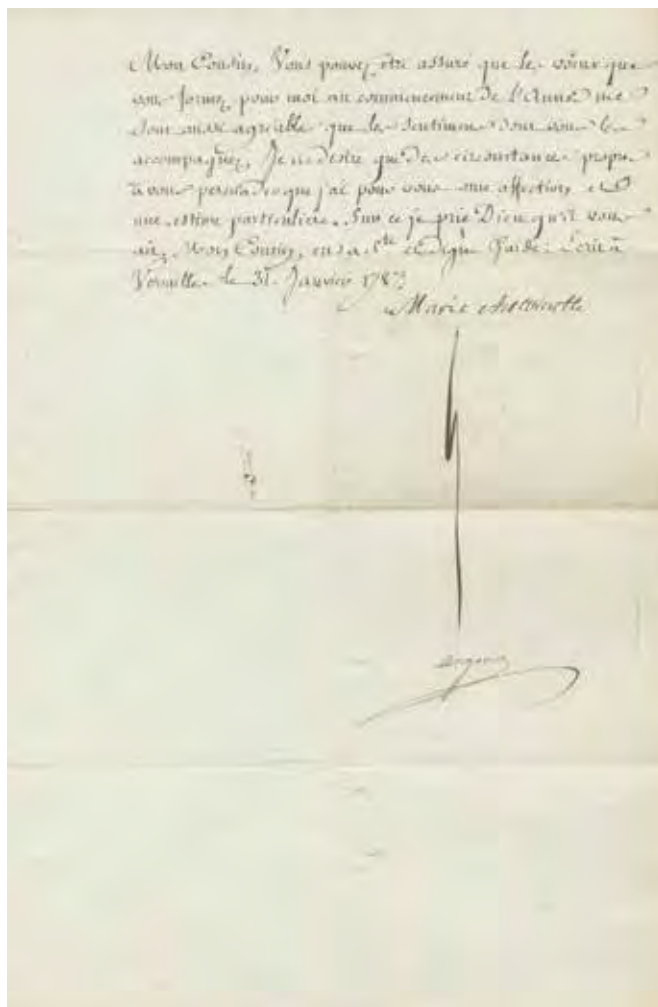 Mon Cousin, Vous pouvez être assuré que les vœux que
vous formez pour moi au commencement de l'Année me
sont aussi agréables que les sentimens dont vous les
accompagnez, Je ne desire que des circonstances propres
à vous persuader que j'ai pour vous une affection et
une estime particuliere. Sur ce je prie Dieu qu'il vous
ait, Mon Cousin, en sa Ste et digne Garde. Ecrit à
Versailles le 31. Janvier 178
Marie Antoinette